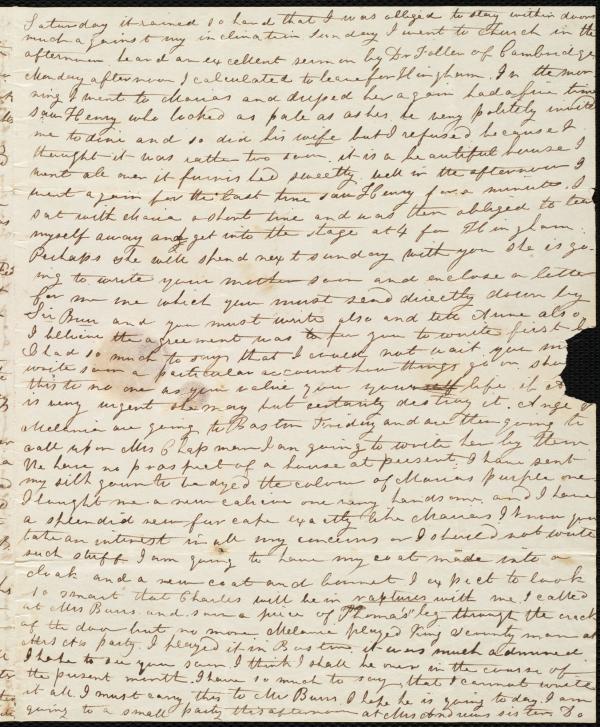 Saturday it rained so hard that I was obliged to stay within doors
much against my inclination Sunday I went to church in the
afternoon heard an excellent sermon by Dr Follen of Cambridge
Monday afternoon I calculated to leave for Hingham. In the mor
ning I went to Marias and dressed her again had a fine time
saw Henry who looked as pale as ashes he very politely invited
me to dine and so did his wife but I refused because I
thought it was rather too soon. it is a beautiful house I
went all over it furnished sweetly. well in the afternoon I
went again for the last time saw Henry for a minute. I
sat with Maria a short time and was then obliged to tear
myself away and get into the stage at 4 for Hingham.
Perhaps she will spend next sunday with you she is go-
ing to write your mother soon and enclose a letter
for me which you must send directly down by
Sir Burr and you must write also and tell Anne also.
I believe the agreement was for you to write first but
I had so much to say that I could not wait you must
write soon a particular account how things go on show
this to no one as you value your life if A
is very urgent she may but certainly destroy it. Ange &
Melanie are going to Boston Friday and are then going to
call upon Mrs Chapman I am going to write her by them
We have no prospect of a house at present. I have sent
my silk gown to be dyed the colour of Marias purple one
I bought me a new calico one very handsome. and I have
a splendid new fur cape exactly like Marias I know you
take an interest in all my concerns or I should not write
such stuff I am going to have my coat made into a
cloak and a new coat and bonnet I expect to look
so smart that Charles will be in raptures with me. I called
at Mrs Burrs and saw a piece of Thomas's leg through the crack
of the door but no more Melanie played King & county man at
Mrs As party. I played it in Boston it was much admired
I hope to see you soon I think I shall be over in the course of
the present month. I have so much to say that I cannot write
it all I must carry this to Mr Burrs I hope he is going to day. I am
going to a small party this afternoon at Mrs Andrews sister To